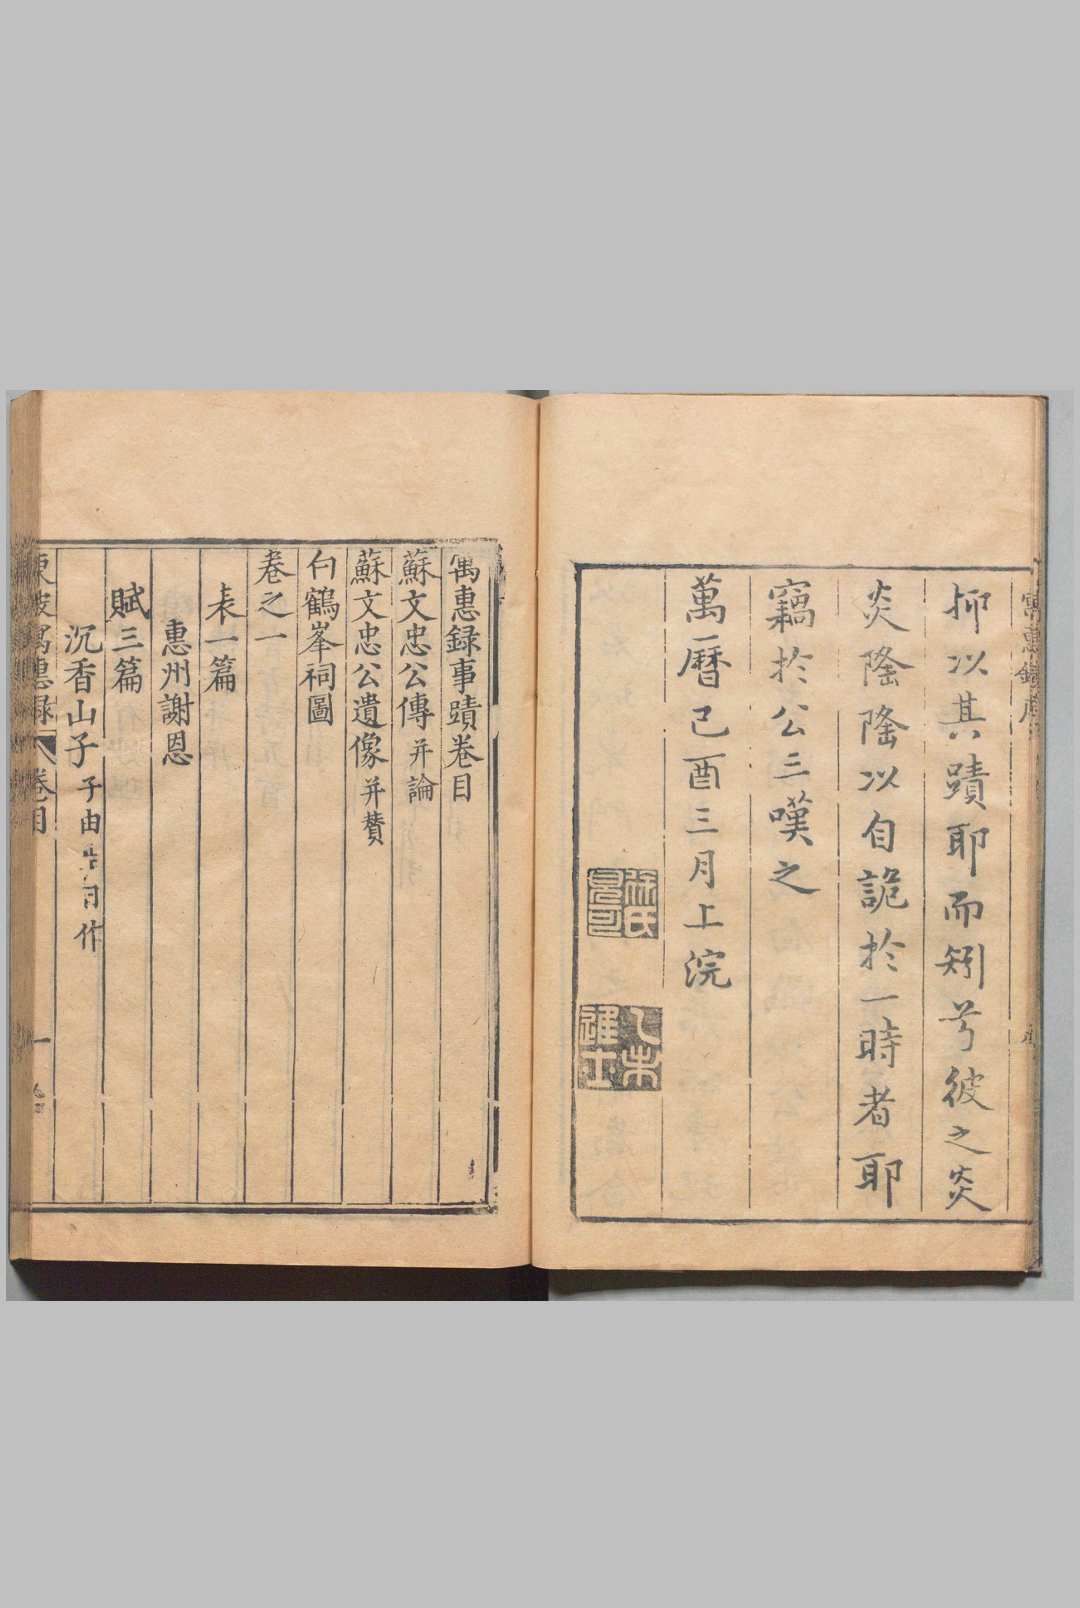 抑以其蹟耶而矧兮彼之炎
炎隆隆以自詭於一時者耶
竊於公三嘆之
萬曆己酉三月上浣
寓惠錄事蹟卷目
蘇文忠公傳并論
蘇文忠公遺像并贊
白鶴峯祠圖
卷之一
表一篇
惠州謝恩
賦三篇
沉香山子子由生日作
東坡寓惠錄卷目
一